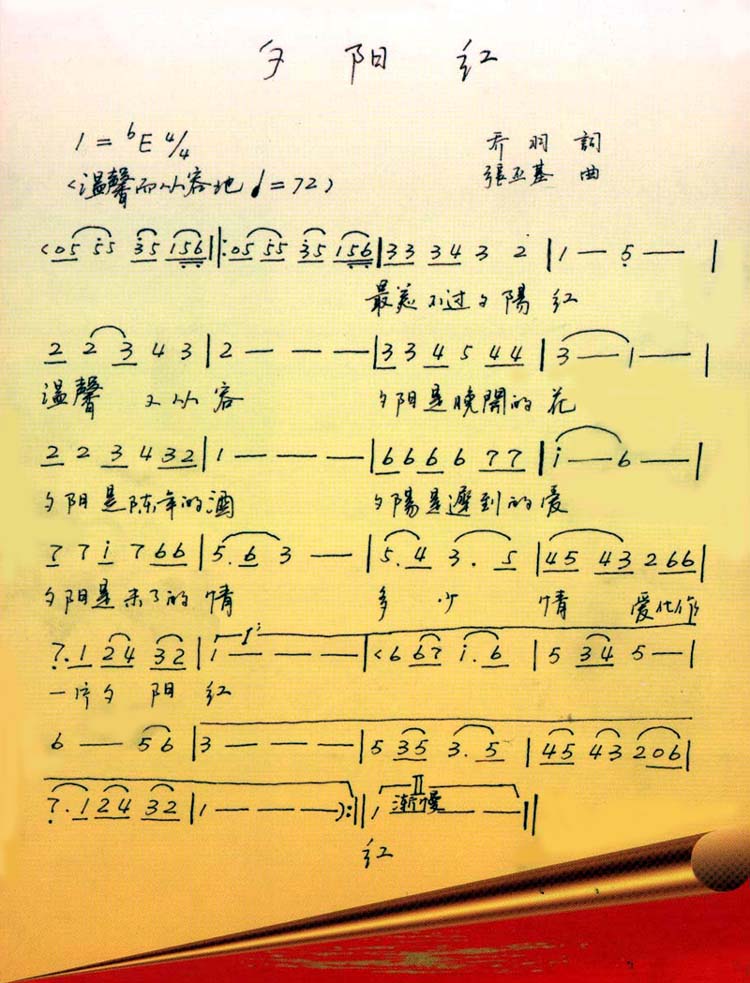 夕阳红
1=ᵇE 4/4
乔羽 詞
〈温馨而从容地 ♩=72〉
張丕基 曲
<05 55 35 156‖:05 55 35 156|33 34 3 2|1 — 5 —|
最美不过夕陽红
2 2 3 4 3|2 — — —|3 3 4 5 44|3 — 1 —|
温馨又从容 夕阳是晚開的花
2 2 3 4 32|1 — — —|6 6 6 6 77|i — 6 —|
夕阳是陈年的酒 夕陽是遲到的爱
7 7 i 7 66|5. 6 3 — —|5. 4 3. 5|45 43 2 66|
夕阳是未了的情 多少情 爱化作
7. 1 24 32|1 — — —|<6 67 i. 6|5 34 5 —|
一片夕阳红
6 — 56|3 — — —|5 35 3. 5|45 43 206|
7. 1 24 32|1 — — —):‖1 — — —‖
II
渐慢
红